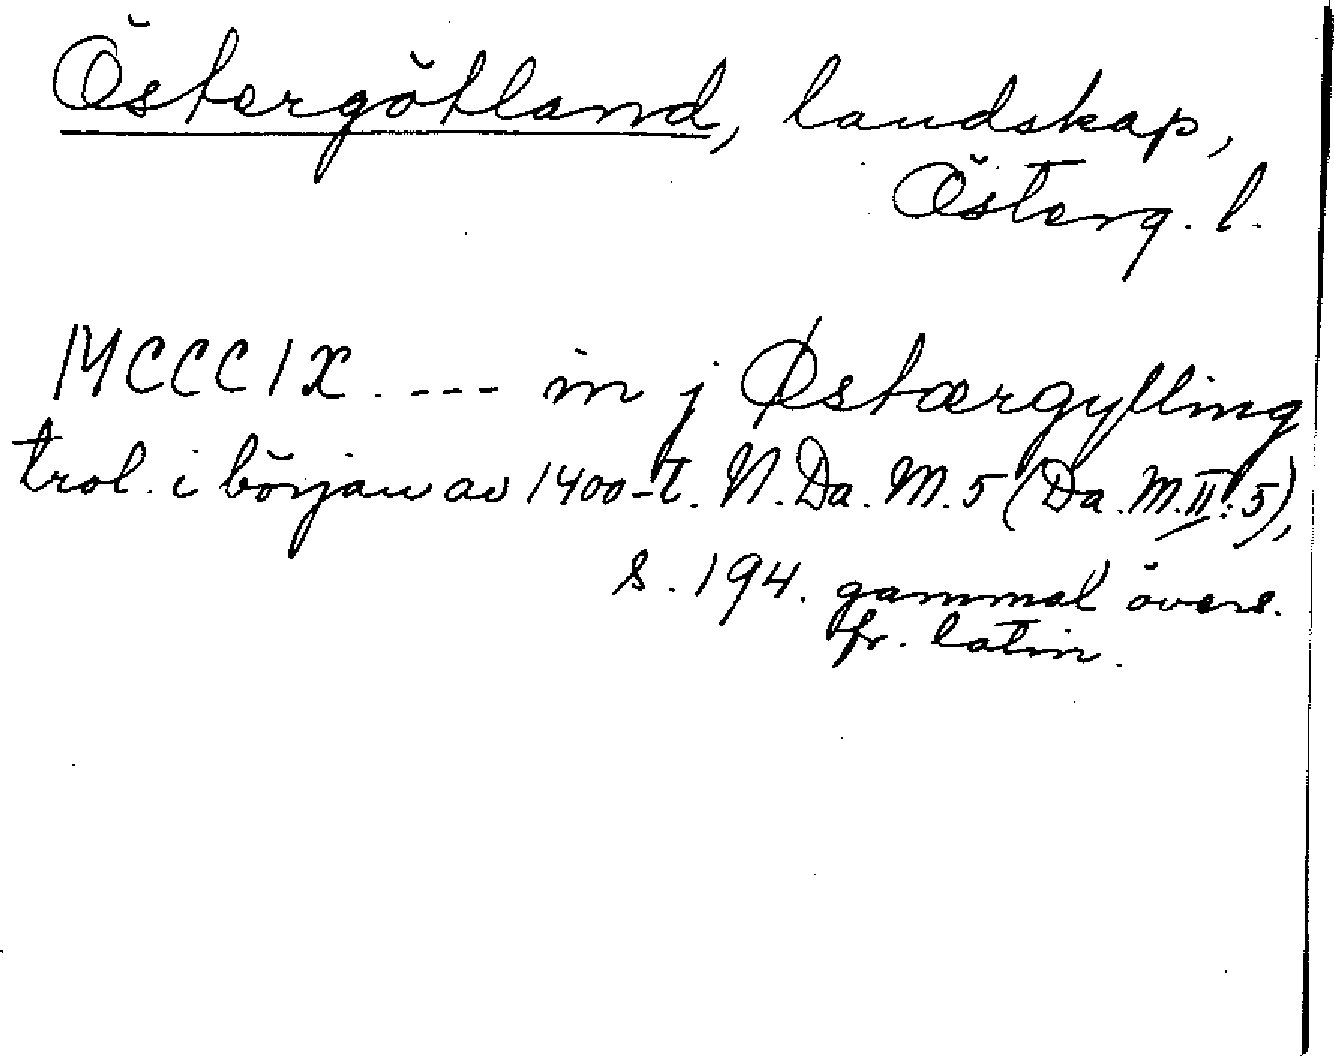 Östergötland, landskap,
Österg. l.
MCCCIX. --- in j Østærgylling
trol. i början av 1400-t. N. Da. M. 5 (Da. M. II: 5),
s. 194. gammal övers.
fr. latin.